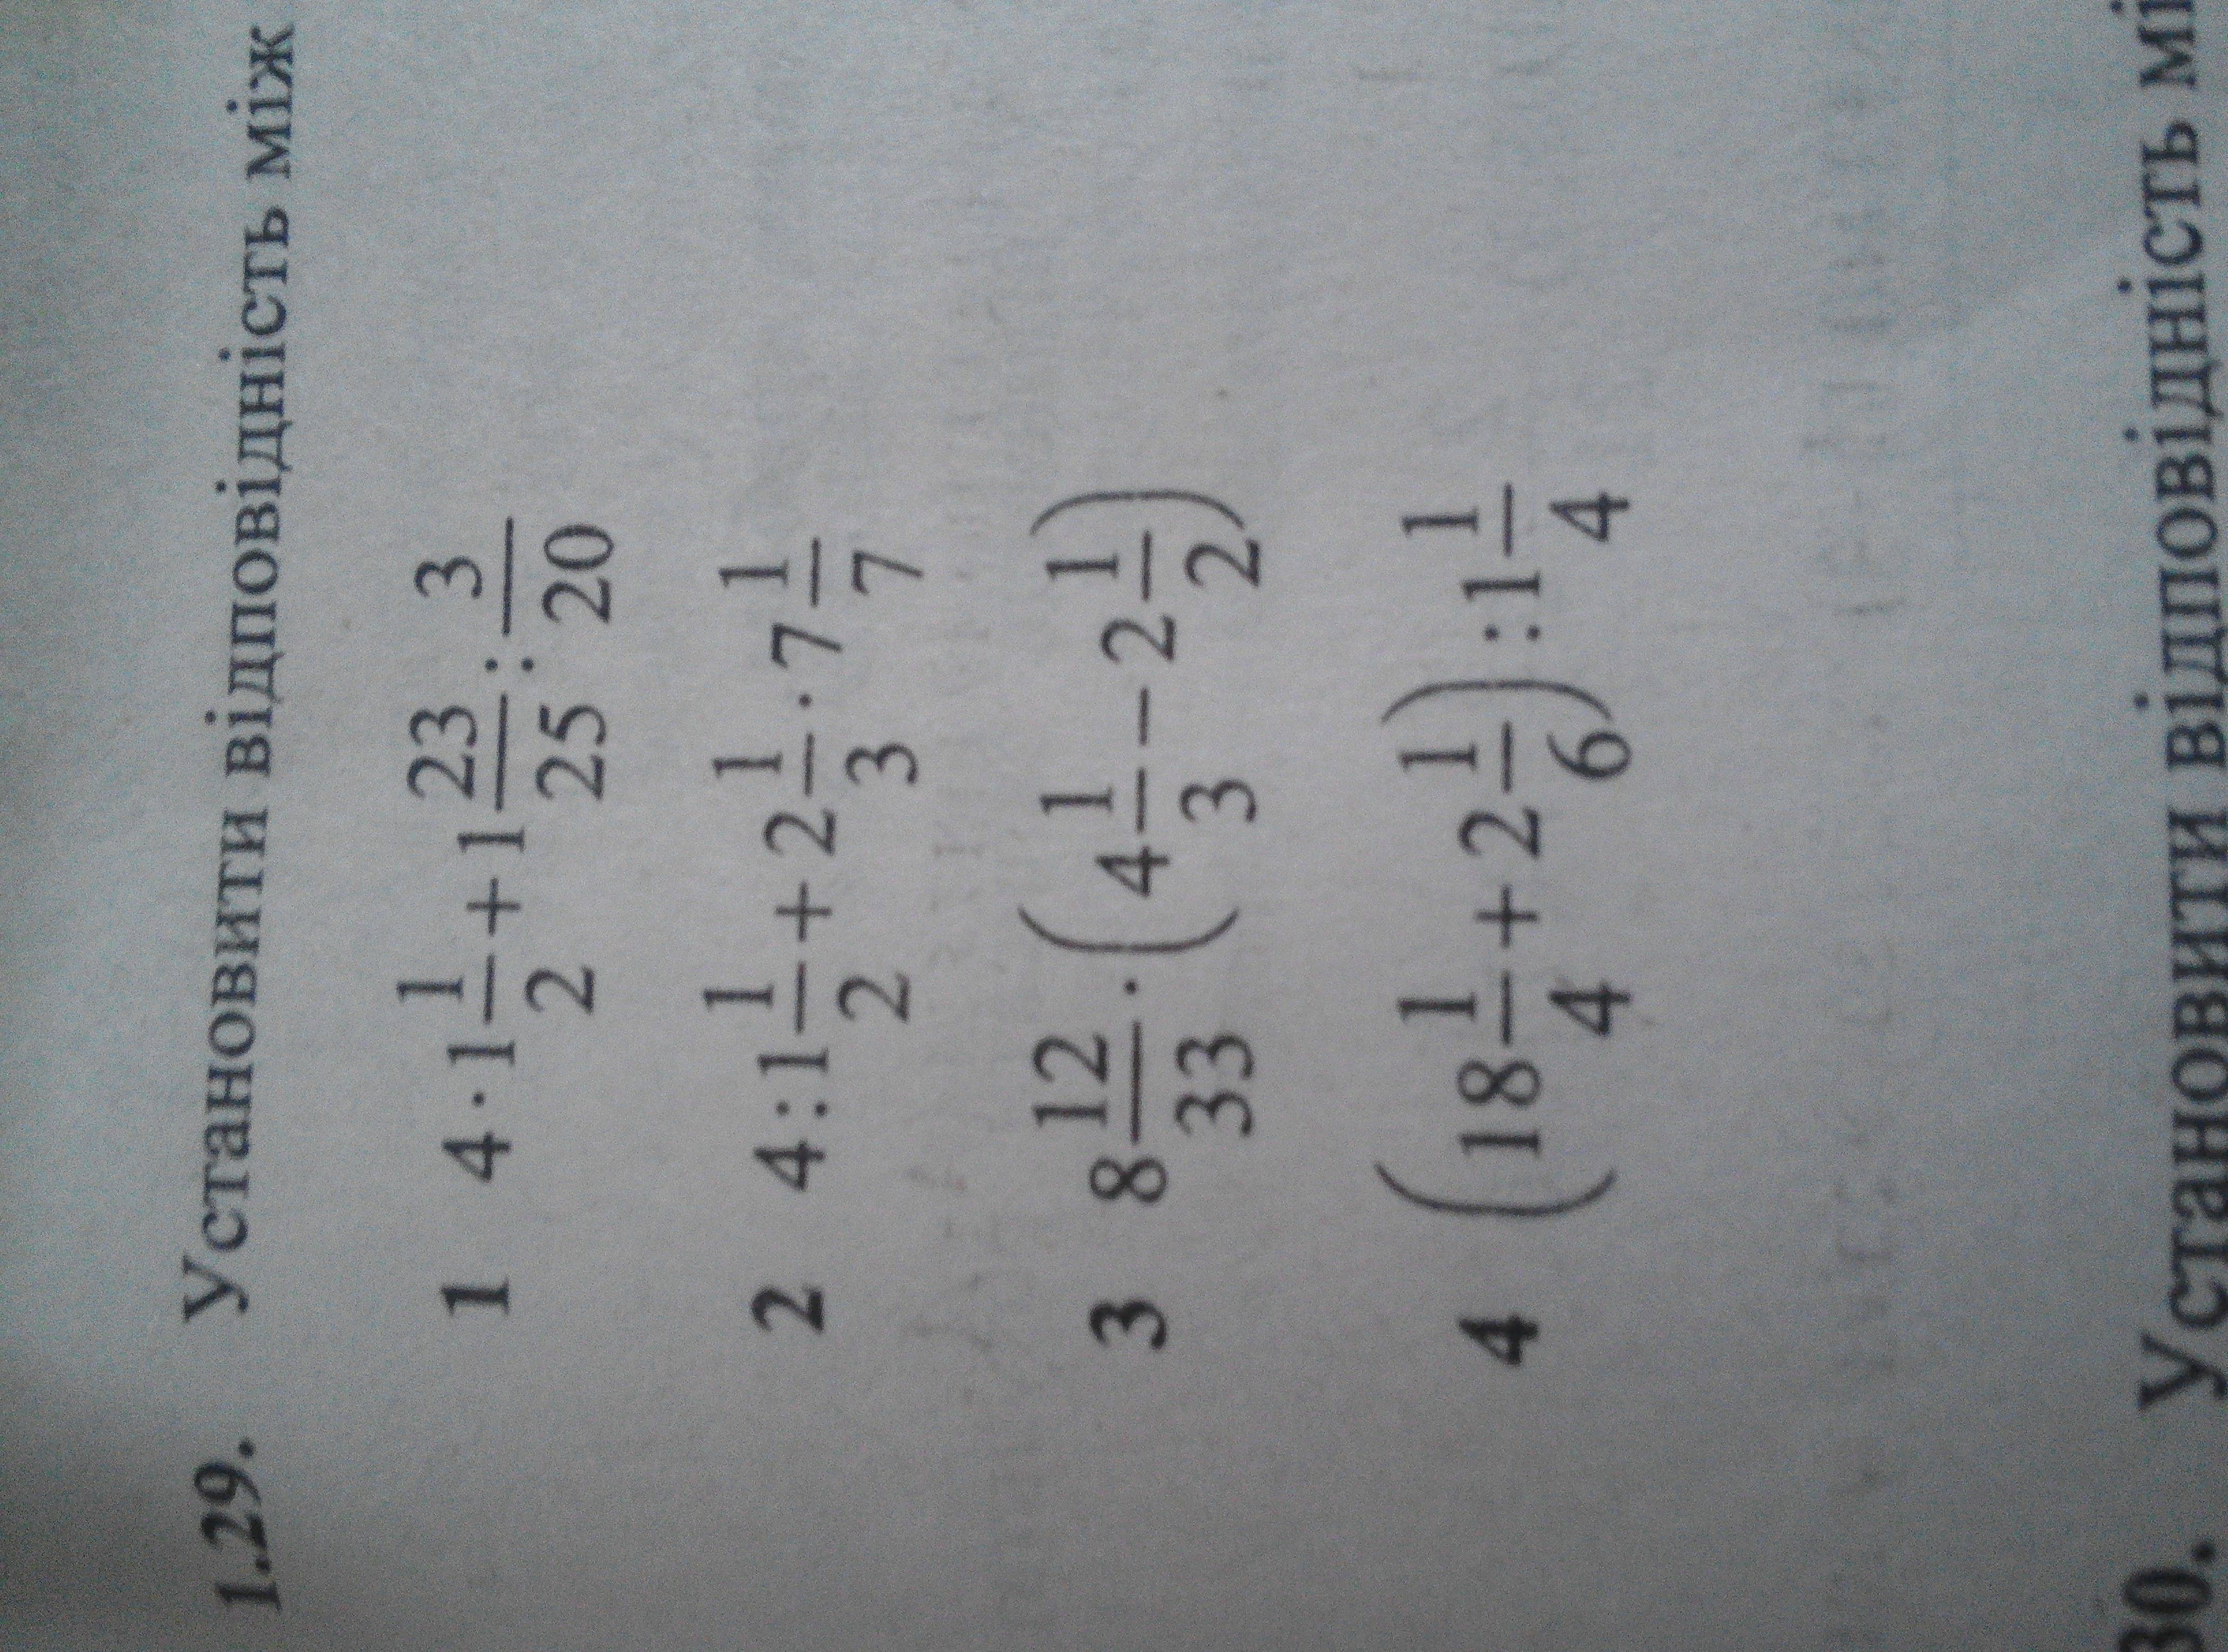 1.29. Установити відповідність між
1 4 · 1 1/2 + 1 23/25 : 3/20
2 4 : 1 1/2 + 2 1/3 · 7 1/7
3 8 12/33 · (4 1/3 − 2 1/2)
4 (18 1/4 + 2 1/6) : 1 1/4
30. Установити відповідність мі